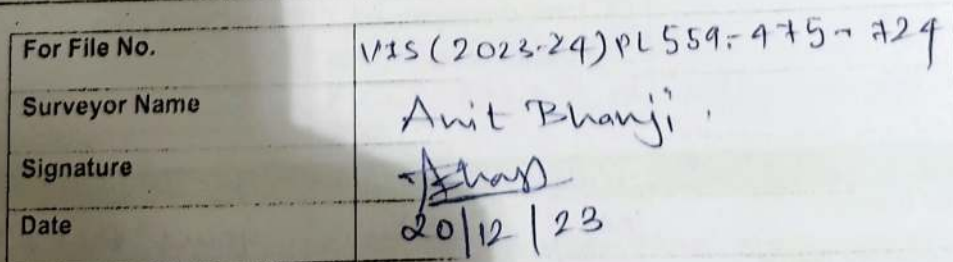 For File No. VIS (2023-24) PL 559-475-724
Surveyor Name Anit Bhanji
Signature
Date 20/12/23